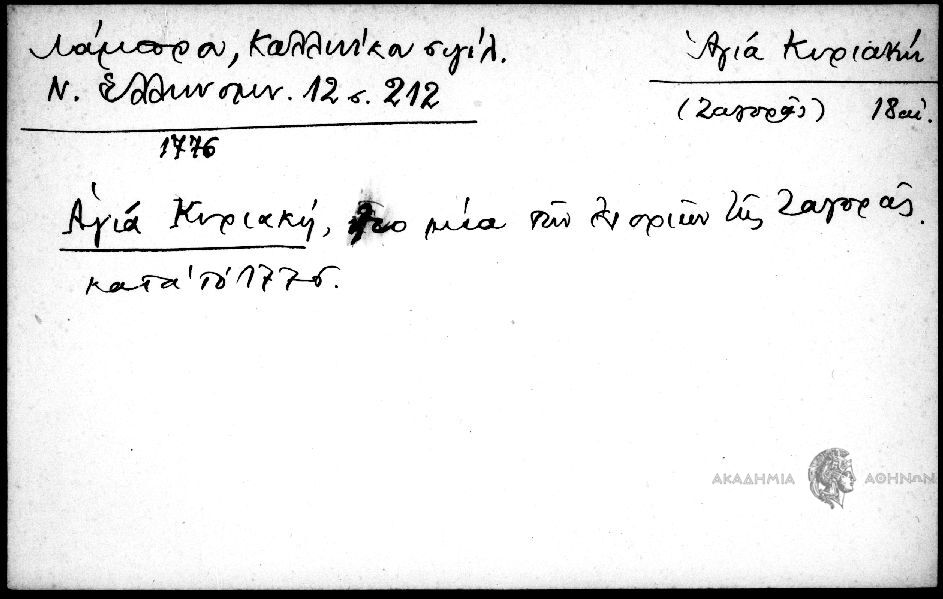 Λάμπρου, Καλλινίκου σιγίλ.
Ν. Ἑλληνομν. 12 σ. 212
1776
Ἁγιά Κυριακή
(Ζαγορᾶς) 18 αἰ.
Ἁγιά Κυριακή, μία τῶν ἐνοριῶν τῆς Ζαγορᾶς
κατά τό 1776.
ΑΚΑΔΗΜΙΑ ΑΘΗΝΩΝ